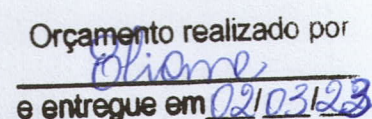 Orçamento realizado por
Eliane
e entregue em 02/03/23